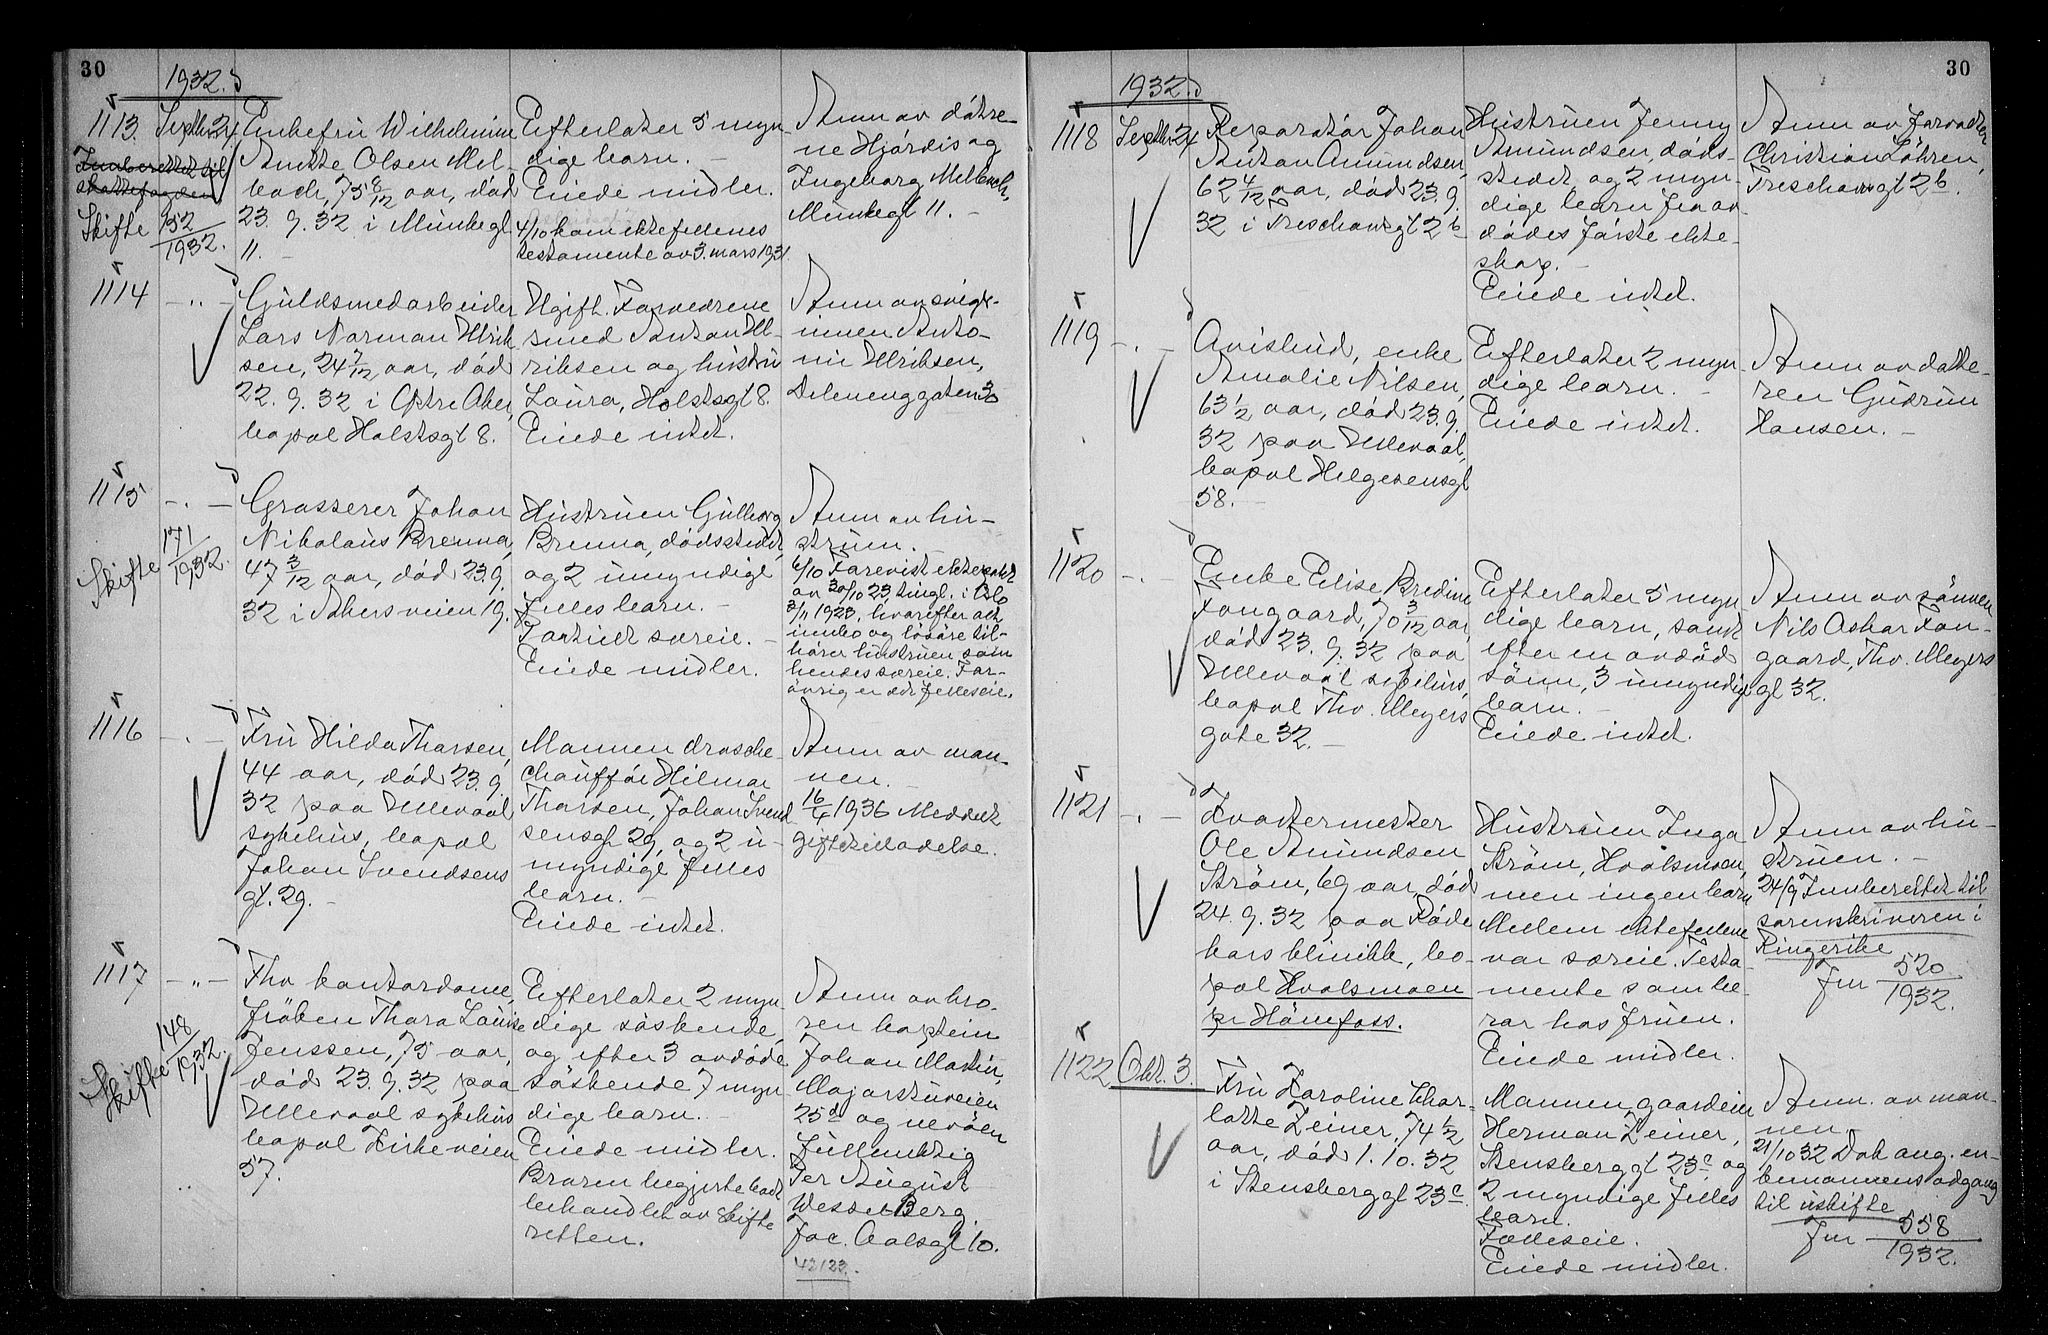 30
1932.
1113.
Septbr. 24.
Innberettet til
skattefogden
Skifte 152
1932.
Enkefru Wilhelmine
Anette Olsen Mel-
bach, 75 8/12 aar, død
23. 9. 32 i Munkegt.
11. -
Efterlater 5 myn-
dige barn. -
Eiede midler.
4/10 kom ektefellenes
testamente av 3. mars 1931.
Anm av døtre-
ne Hjørdis og
Ingeborg Melbach,
Munkegt 11. -
1114
- " -
Guldsmedarbeider
Lars Norman Ulrik-
sen, 24 7/12 aar, død
22. 9. 32 i Østre Aker,
bopæl Holstsgt 8.
Ugift. Forældrene
smed Anton Ul-
riksen og hustru
Laura, Holstsgt 8.
Eiede intet.
Anm av sviger-
innen Anto-
nie Ulriksen,
Delenenggaten 3
1115
- " -
Skifte 171
1932.
Grosserer Johan
Nikolaus Brenna,
47 3/12 aar, død 23. 9.
32 i Akersveien 19.
Hustruen Gulborg
Brenna, dødsstedet,
og 2 umyndige
felles barn. -
Formuet særeie. -
Eiede midler.
Anm av hu-
struen. -
6/10 Forevist ektepakt
av 30/10 23, tingl. i Oslo
3/11 1923, hvorefter alt
innbo og løsøre til-
hører hustruen som
hendes særeie. For-
øvrig er det felleseie.
1116
- " -
Fru Hilda Thorsen,
44 aar, død 23. 9.
32 paa Ullevaal
sykehus, bopæl
Johan Svendsens
gt. 29. -
Mannen drosche-
chauffør Hilmar
Thorsen, Johan Svend
sensgt 29, og 2 u-
myndige felles
barn. -
Eiede intet.
Anm av man-
nen. -
16/4 1936 Meddelt
giftetilladelse.
1117
- " -
Skifte 148
1932.
Fhv kontordame,
frøken Thora Louise
Jenssen, 75 aar,
død 23. 9. 32 paa
Ullevaal sykehus
bopæl Kirkeveien
57.
Efterlater 2 myn-
dige søskende,
og efter 3 avdøde
søskende 7 myn
dige barn. -
Eiede midler.
Broren begjærte boet
behandlet av skifte
retten.
Anm av bro-
ren kaptein
Johan Martin,
Majorstuveien
25d og nevøen
fullmektig
Per August
Wessel-Berg
Jac. Aalsgt 10.
42123.
30
1932.
1118
Septbr 24
Reparatør Johan
Anton Amundsen,
62 4/12 aar, død 23. 9.
32 i Treschowsgt 2b
Hustruen Jenny
Amundsen, døds-
stedet og 2 myn-
dige barn fra av-
dødes første ekte-
skap. -
Eiede intet.
Anm av forvalter
Christian Løhren,
Treschowsgt 2b.
1119
- " -
Avisbud, enke
Amalie Nilsen,
63 1/2 aar, død 23. 9.
32 paa Ullevaal,
bopæl Helgesensgt
58. -
Efterlater 2 myn-
dige barn. -
Eiede intet.
Anm av datte-
ren Gudrun
Hansen. -
1120
- " -
Enke Elise Bredine
Fongaard, 70 3/12 aar,
død 23. 9. 32 paa
Ullevaal sykehus,
bopæl Thv. Meyers
gate 32. -
Efterlater 5 myn
dige barn, samt
efter en avdød
sønn, 3 umyndige
barn. -
Eiede intet.
Anm av sønnen
Nils Oskar Fon-
gaard, Thv. Meyers
gt 32.
1121
- " -
Kvartermester
Ole Amundsen
Strøm, 69 aar, død
24. 9. 32 paa Røde
kors klinikk, bo-
pæl Hvalsmoen
pr Hønefoss.
Hustruen Inga
Strøm, Hvalsmoen,
men ingen barn
Mellem ektefellene
var særeie. Testa-
mente som be-
ror hos fruen.
Eiede midler.
Anm av hu-
struen. -
24/9 Innberettet til
sorenskriveren i
Ringerike
Jnr 520
1932.
1122
Okt. 3.
Fru Karoline Char-
lotte Zeiner, 74 1/2
aar, død 1. 10. 32
i Stensberggt 23c
Mannen gaardeier
Herman Zeiner,
Stensberggt 23c og
2 myndige felles
barn.
Fælleseie.
Eiede midler.
Anm. av man-
nen.
21/10 32 Dok ang. en-
kemannens adgang
til uskifte
Jnr 558
1932.